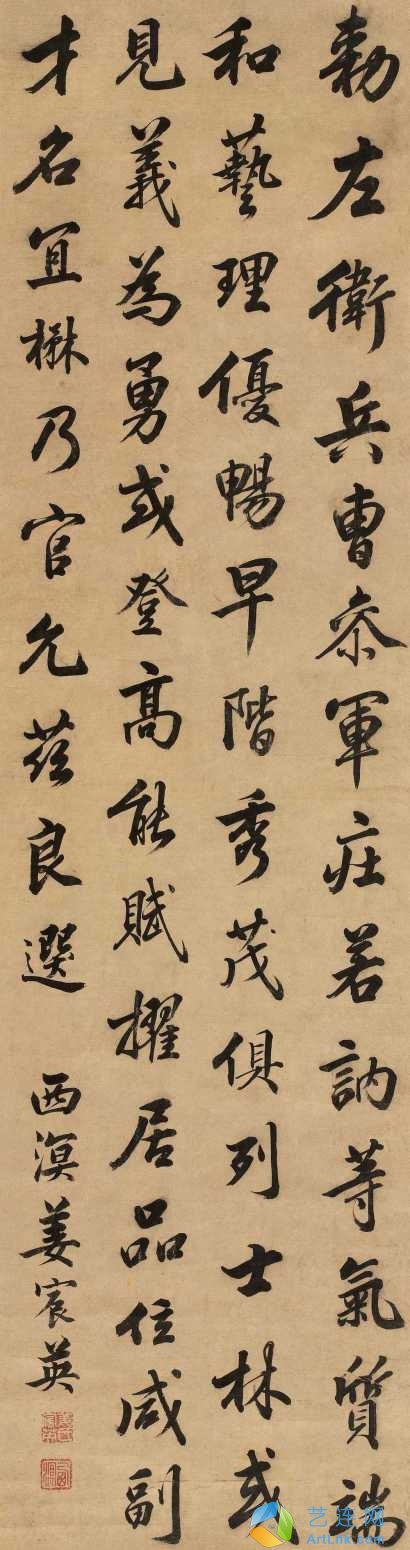 勅左衛兵曹参軍庄若訥等氣質端
和藝理優暢早階秀茂俱列士林或
見義為勇或登高能賦擢居品位咸副
才名宜楙乃官允茲良選
西溟姜宸英
艺连网
ArtLnk.com